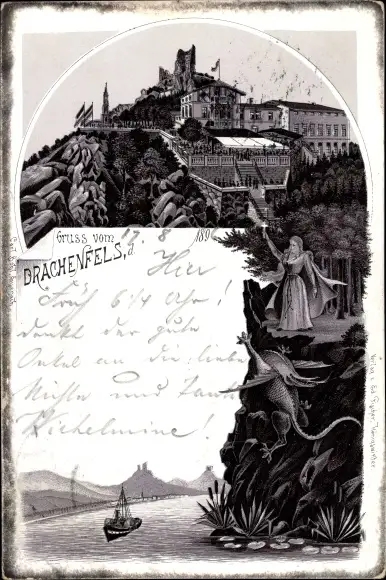 Gruss vom 17. 8 189
DRACHENFELS, d.
Hier
Früh 6 1/4 Uhr!
denkt der gute
Onkel an die liebe
und Tante
Wichelmine!